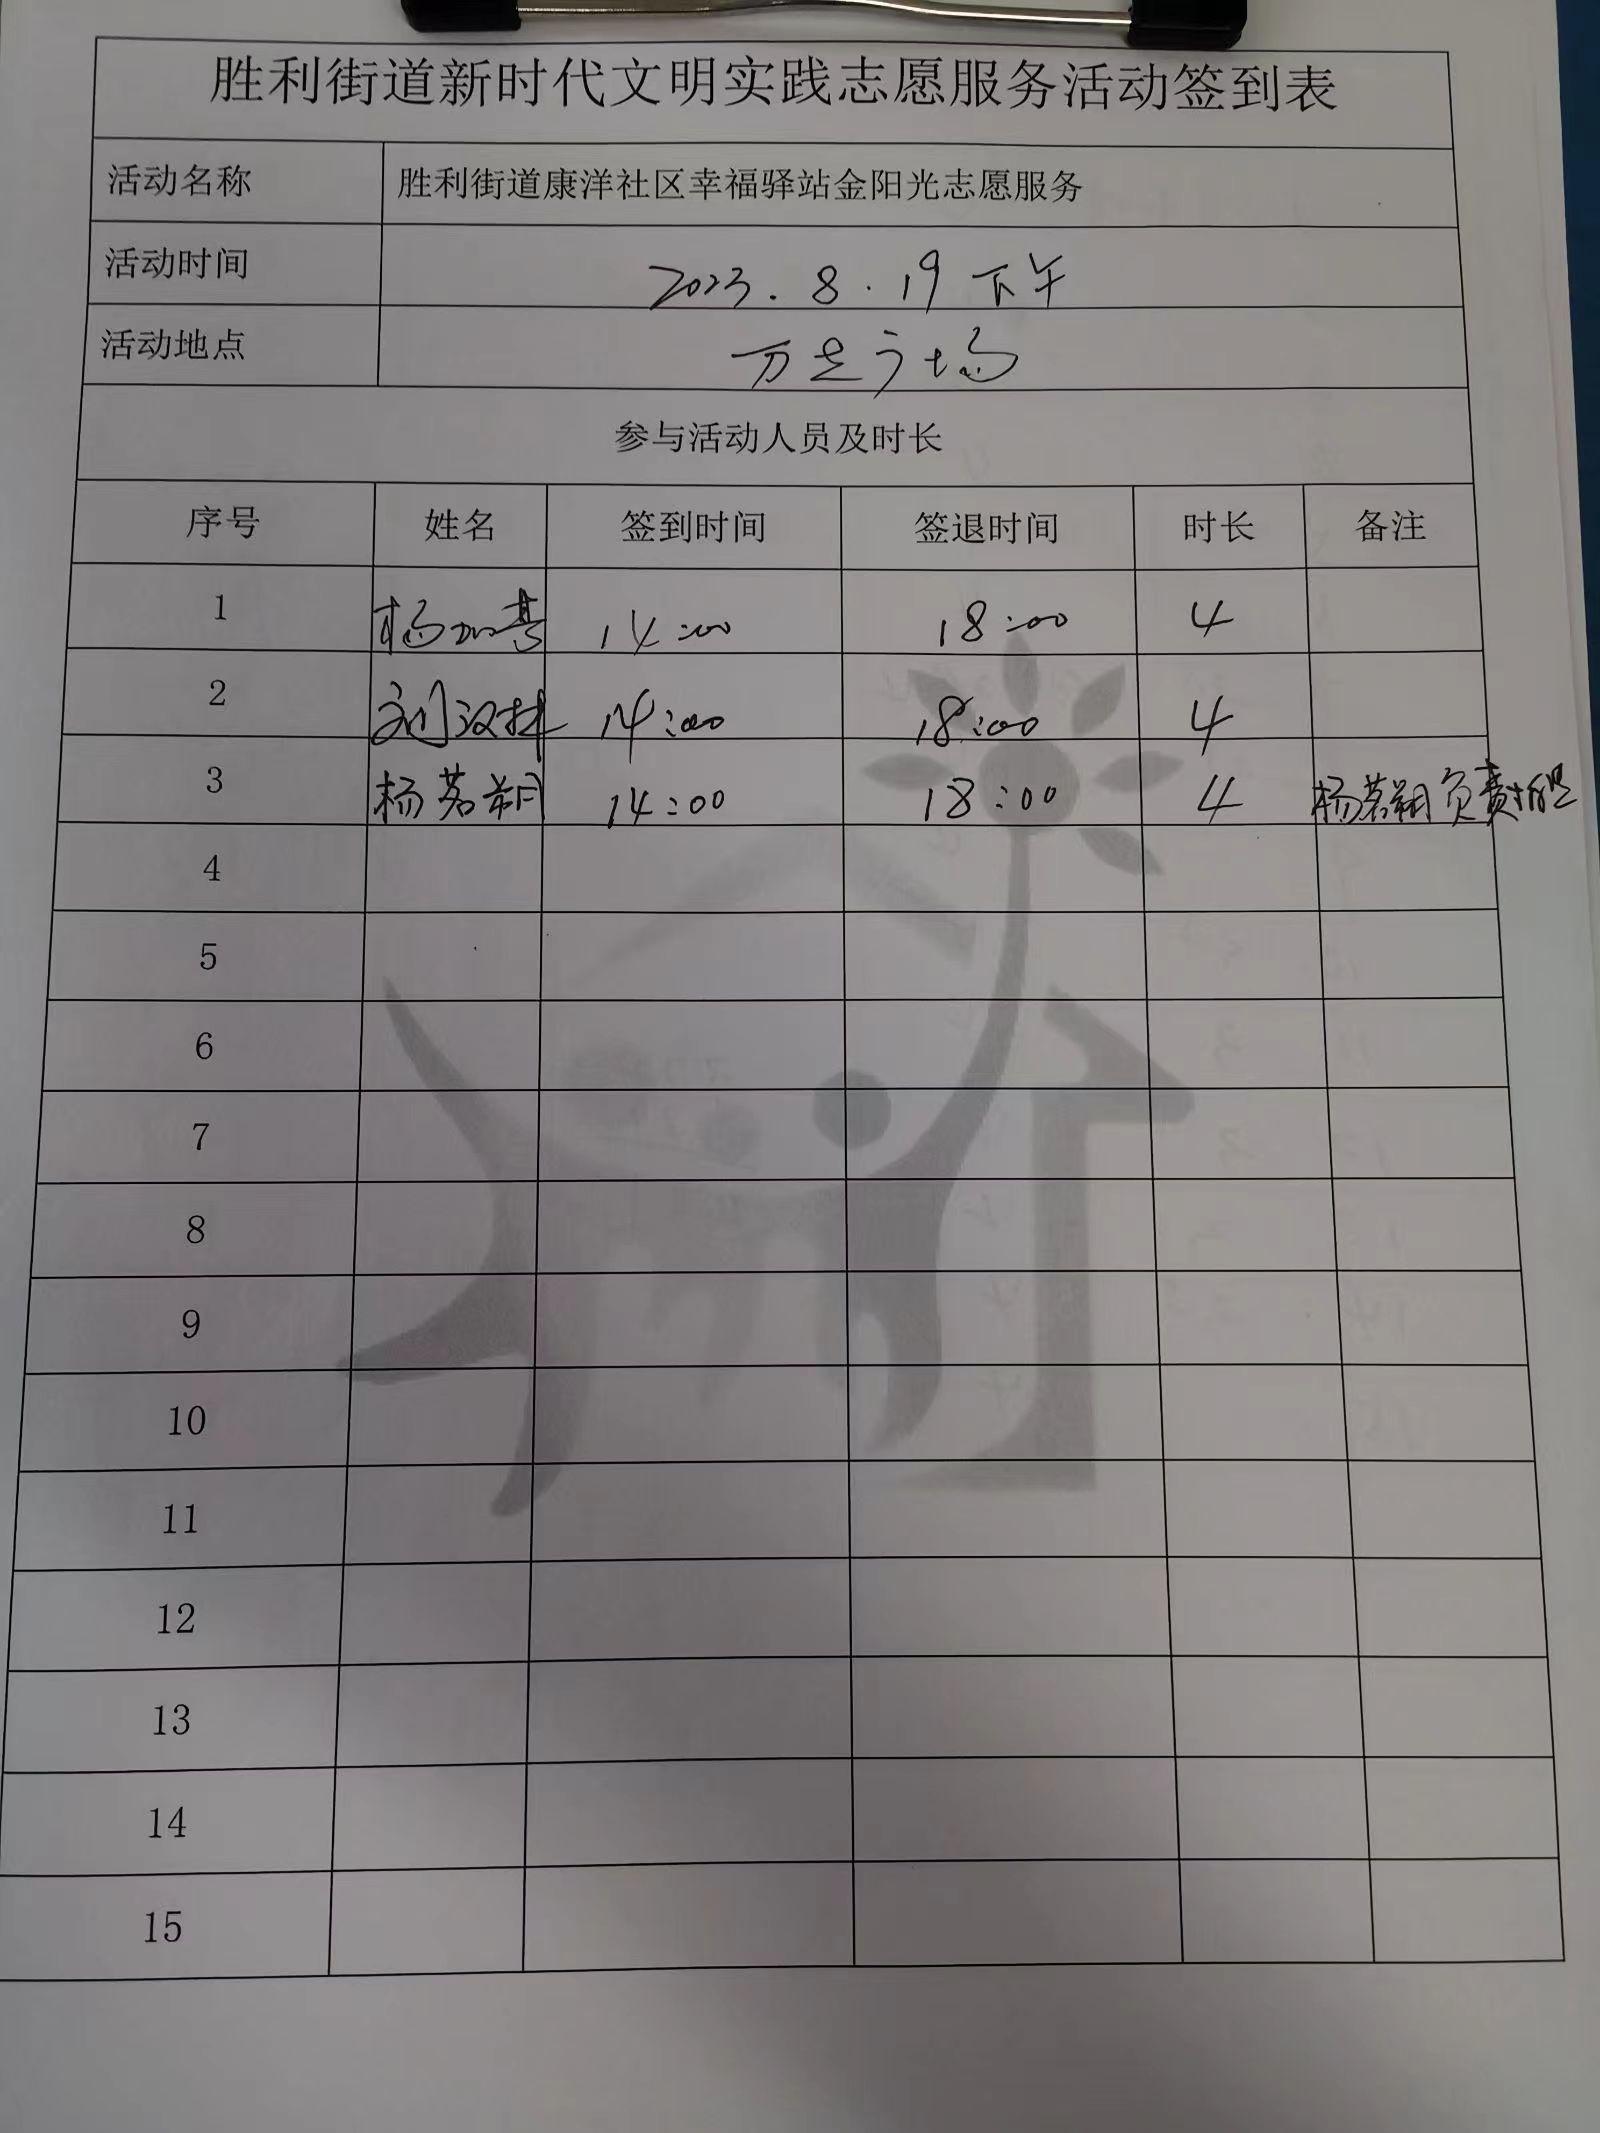 胜利街道新时代文明实践志愿服务活动签到表
活动名称 胜利街道康洋社区幸福驿站金阳光志愿服务
活动时间 2023.8.19 下午
活动地点 万达广场
参与活动人员及时长
序号 姓名 签到时间 签退时间 时长 备注
1 14:00 18:00 4
2 刘汉林 14:00 18:00 4
3 杨茗翔 14:00 18:00 4 杨茗翔负责
4
5
6
7
8
9
10
11
12
13
14
15